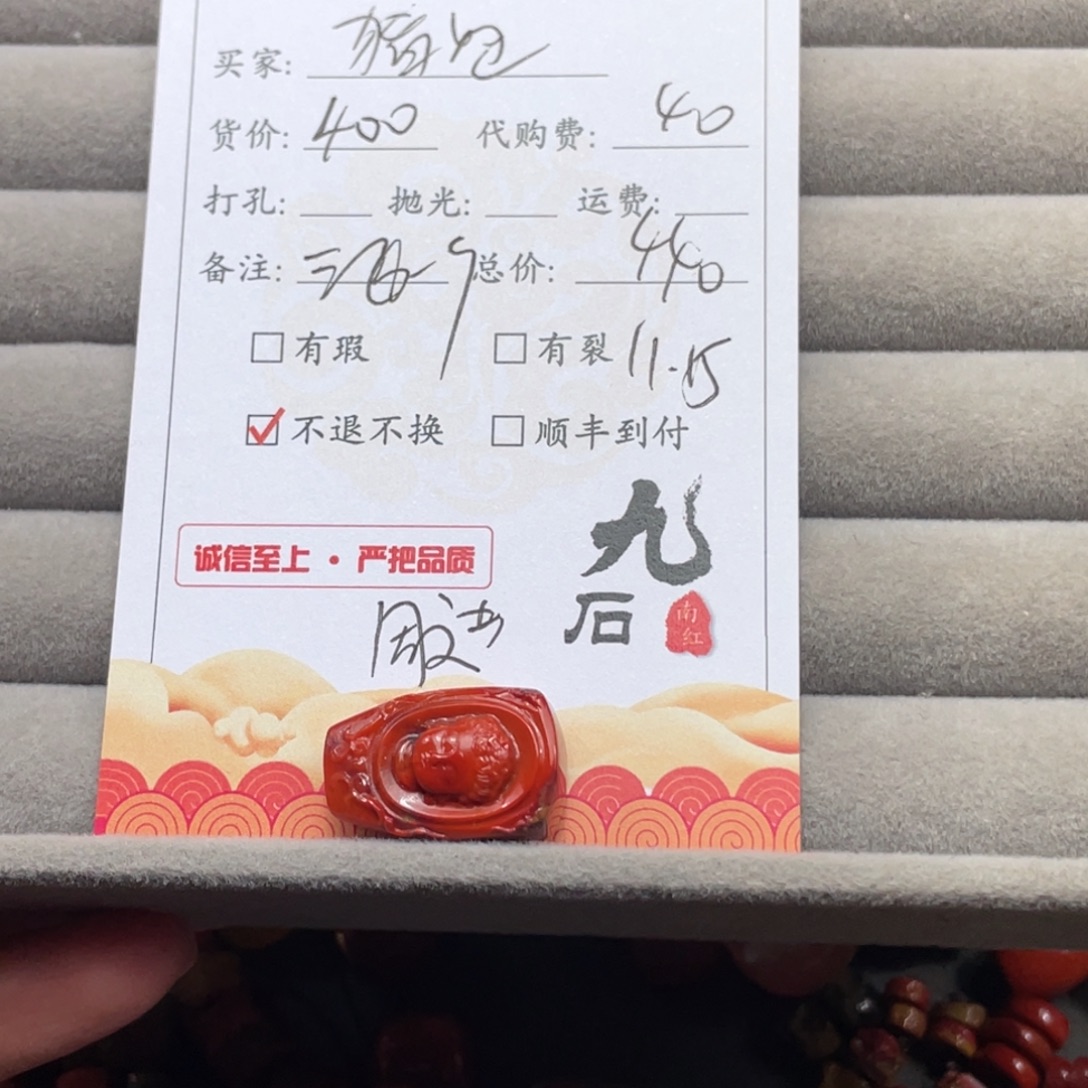 买家:
货价: 400 代购费: 40
打孔: 抛光: 运费:
备注: 总价: 440
有瑕 有裂 11.15
不退不换 顺丰到付
诚信至上·严把品质
九石
南红